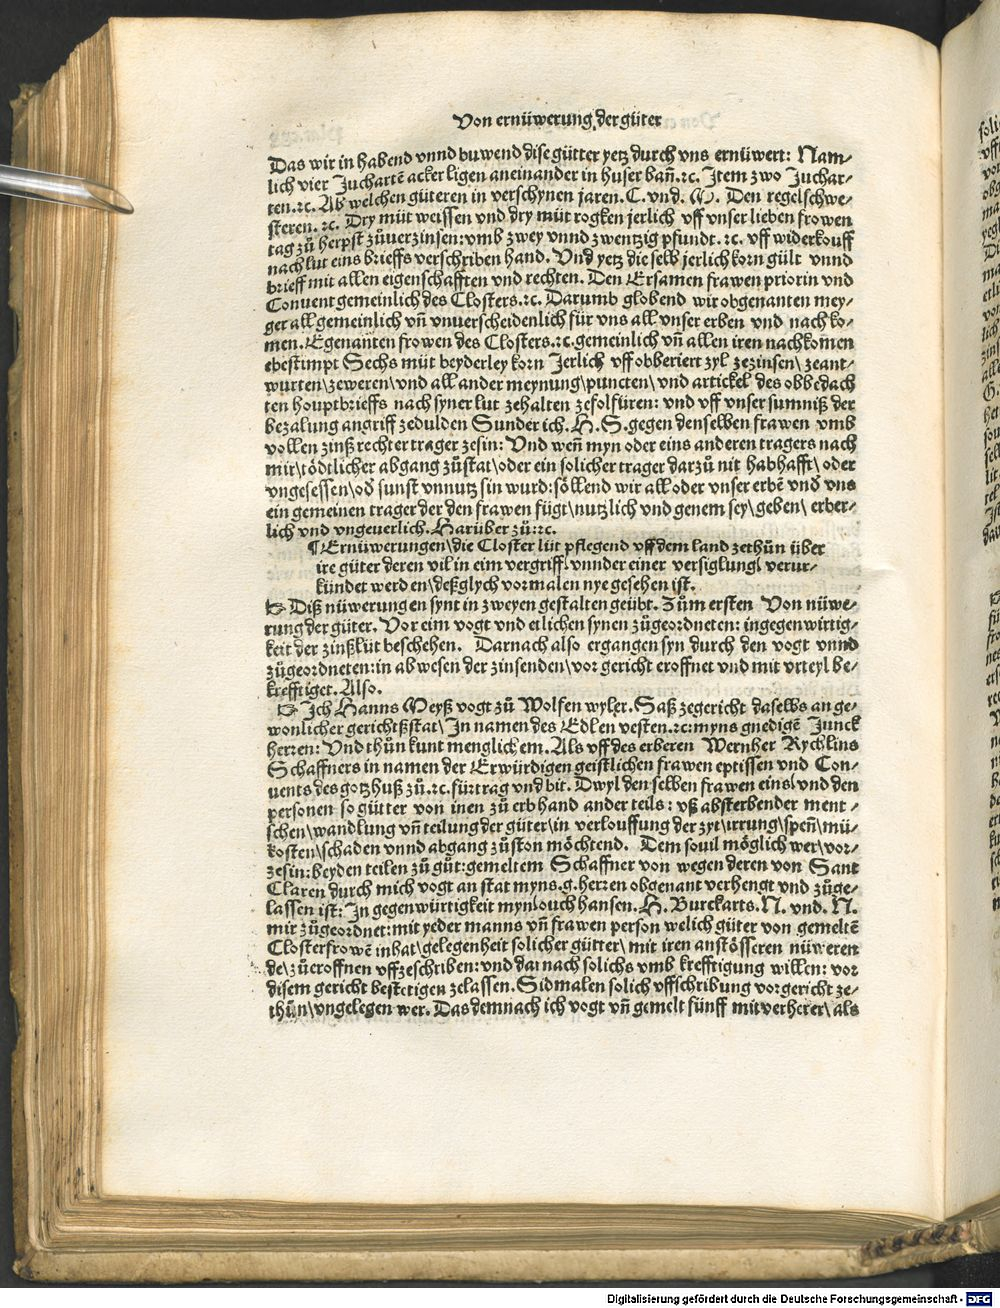 Von ernüwerung der güter
Das wir in habend vnnd buwend dise gütter yetz durch vns ernüwert: Nam-
lich vier Juchartē acker ligen aneinander in huser bañ.ꝛc. Jtem zwo Juchar-
ten.ꝛc. Ab welchen güteren in verschynen jaren. C. vnd. M. Den regelschwe-
steren. ꝛc. Dry müt weissen vnd dry müt rogken jerlich vff vnser lieben frowen
tag zů herpst zůuerzinsen: vmb zwey vnnd zwentzig pfundt. ꝛc. vff widerkouff
nach lut eins brieffs verschriben hand. Vnd yetz die selb jerlich korn gült vnnd
brieff mit allen eigenschafften vnd rechten. Den Ersamen frawen priorin vnd
Conuent gemeinlich des Closters.ꝛc. Darumb globend wir obgenanten mey-
ger all gemeinlich vñ vnuerscheidenlich für vns all vnser erben vnd nachko-
men. Egenanten frowen des Closters.ꝛc. gemeinlich vñ allen iren nachkomen
ebestimpt Sechs müt beyderley korn Jerlich vff obberiert zyl zezinsen\ zeant-
wurten\ zeweren\ vnd all ander meynung\ puncten\ vnd artickel des obbedach
ten houptbrieffs nach syner lut zehalten zefolfüren: vnd vff vnser sumniß der
bezalung angriff zedulden Sunder ich. H. S. gegen denselben frawen vmb
vollen zinß rechter trager zesin: Vnd weñ myn oder eins anderen tragers nach
mir\ tödtlicher abgang zůstat\ oder ein solicher trager darzů nit habhafft\ oder
vngesessen\ oď sunst vnnutz sin wurd: söllend wir all oder vnser erbē vnď vns
ein gemeinen trager der den frawen fügt\ nutzlich vnd genem sey\ geben\ erber-
lich vnd vngeuerlich. Harüber zů:ꝛc.
¶ Ernüwerungen\ die Closter lüt pflegend vff dem land zethůn über
ire güter deren vil in eim vergriff\ vnnder einer versiglung\ verur-
kündet werden\ deßglych vormalen nye gesehen ist.
☞ Diß nüwerungen synt in zweyen gestalten geübt. Zům ersten Von nüwe-
rung der güter. Vor eim vogt vnd etlichen synen zůgeordneten: ingegenwirtig-
keit der zinßlüt beschehen. Darnach also ergangen syn durch den vogt vnnd
zůgeordneten: in abwesen der zinsenden\ vor gericht eroffnet vnd mit vrteyl be-
krefftiget. Also.
☞ Jch Hanns Meyß vogt zů Wolfen wyler. Saß zegericht daselbs an ge-
wonlicher gerichtßstat\ Jn namen des Edlen vesten.ꝛc: myns gnedigē Junck
herren: Vnd thůn kunt menglichem. Als vff des erberen Wernher Rychlins
Schaffners in namen der Erwürdigen geistlichen frawen eptissen vnd Con-
uents des gotzhuß zů.ꝛc. fürtrag vnd bit. Dwyl den selben frawen eins\ vnd den
personen so gütter von inen zů erb hand ander teils: vß absterbender ment-
schen\ wandlung vñ teilung der güter\ in verlouffung der zyt\ irrung\ speñ\ mü-
kosten\ schaden vnnd abgang zůston möchtend. Dem souil möglich wer\ vor-
zesin: beyden teilen zů gůt: gemeltem Schaffner von wegen deren von Sant
Claren durch mich vogt an stat myns.g. herren obgenant verhengt vnd zůge-
lassen ist: Jn gegenwürtigkeit myn\ ouch hansen. H. Burckarts. N. vnd. N.
mir zůgeordnet: mit yeder manns vñ frawen person welich güter von gemeltē
Closterfrowē inhat\ gelegenheit solicher gütter\ mit iren anstösseren nüweren
de\ zůeroffnen vffzeschriben: vnd darnach solichs vmb krefftigung willen: vor
disem gericht bestetigen zelassen. Sidmalen solich vffschribung vor gericht ze-
thůn\ vngelegen wer. Das demnach ich vogt vñ gemelt fünff mitverherer\ als
Digitalisierung gefördert durch die Deutsche Forschungsgemeinschaft - DFG